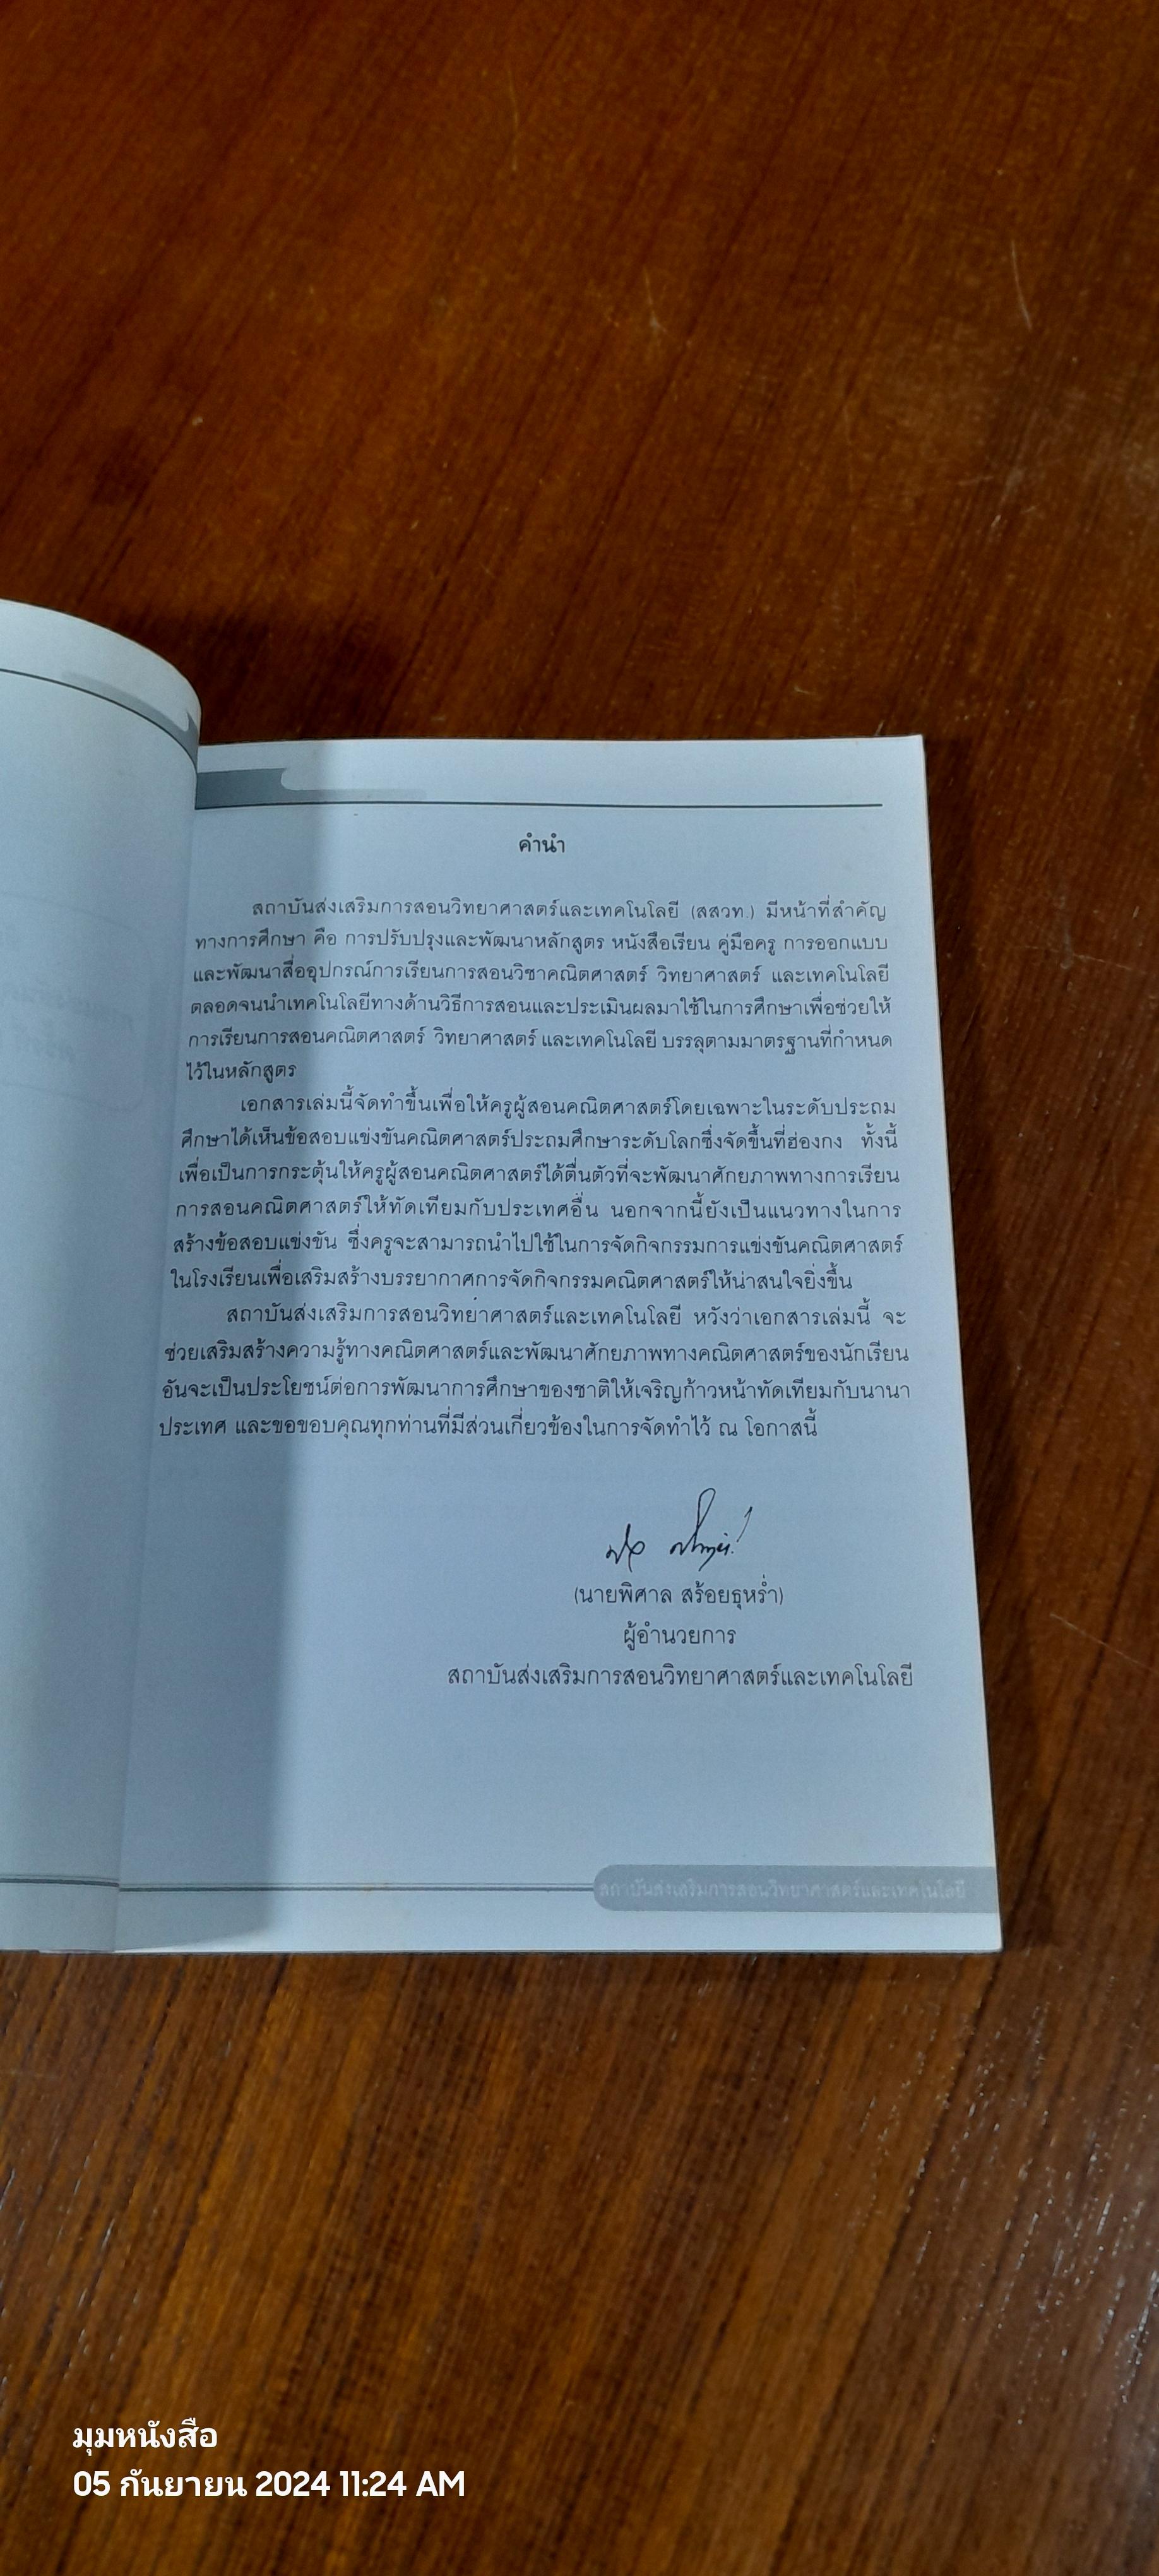 คำนำ
สถาบันส่งเสริมการสอนวิทยาศาสตร์และเทคโนโลยี (สสวท.) มีหน้าที่สำคัญ
ทางการศึกษา คือ การปรับปรุงและพัฒนาหลักสูตร หนังสือเรียน คู่มือครู การออกแบบ
และพัฒนาสื่ออุปกรณ์การเรียนการสอนวิชาคณิตศาสตร์ วิทยาศาสตร์ และเทคโนโลยี
ตลอดจนนำเทคโนโลยีทางด้านวิธีการสอนและประเมินผลมาใช้ในการศึกษาเพื่อช่วยให้
การเรียนการสอนคณิตศาสตร์ วิทยาศาสตร์ และเทคโนโลยี บรรลุตามมาตรฐานที่กำหนด
ไว้ในหลักสูตร
เอกสารเล่มนี้จัดทำขึ้นเพื่อให้ครูผู้สอนคณิตศาสตร์โดยเฉพาะในระดับประถม
ศึกษาได้เห็นข้อสอบแข่งขันคณิตศาสตร์ประถมศึกษาระดับโลกซึ่งจัดขึ้นที่ฮ่องกง ทั้งนี้
เพื่อเป็นการกระตุ้นให้ครูผู้สอนคณิตศาสตร์ได้ตื่นตัวที่จะพัฒนาศักยภาพทางการเรียน
การสอนคณิตศาสตร์ให้ทัดเทียมกับประเทศอื่น นอกจากนี้ยังเป็นแนวทางในการ
สร้างข้อสอบแข่งขัน ซึ่งครูจะสามารถนำไปใช้ในการจัดกิจกรรมการแข่งขันคณิตศาสตร์
ในโรงเรียนเพื่อเสริมสร้างบรรยากาศการจัดกิจกรรมคณิตศาสตร์ให้น่าสนใจยิ่งขึ้น
สถาบันส่งเสริมการสอนวิทยาศาสตร์และเทคโนโลยี หวังว่าเอกสารเล่มนี้ จะ
ช่วยเสริมสร้างความรู้ทางคณิตศาสตร์และพัฒนาศักยภาพทางคณิตศาสตร์ของนักเรียน
อันจะเป็นประโยชน์ต่อการพัฒนาการศึกษาของชาติให้เจริญก้าวหน้าทัดเทียมกับนานา
ประเทศ และขอขอบคุณทุกท่านที่มีส่วนเกี่ยวข้องในการจัดทำไว้ ณ โอกาสนี้
(นายพิศาล สร้อยธุหร่ำ)
ผู้อำนวยการ
สถาบันส่งเสริมการสอนวิทยาศาสตร์และเทคโนโลยี
สถาบันส่งเสริมการสอนวิทยาศาสตร์และเทคโนโลยี
มุมหนังสือ
05 กันยายน 2024 11:24 AM